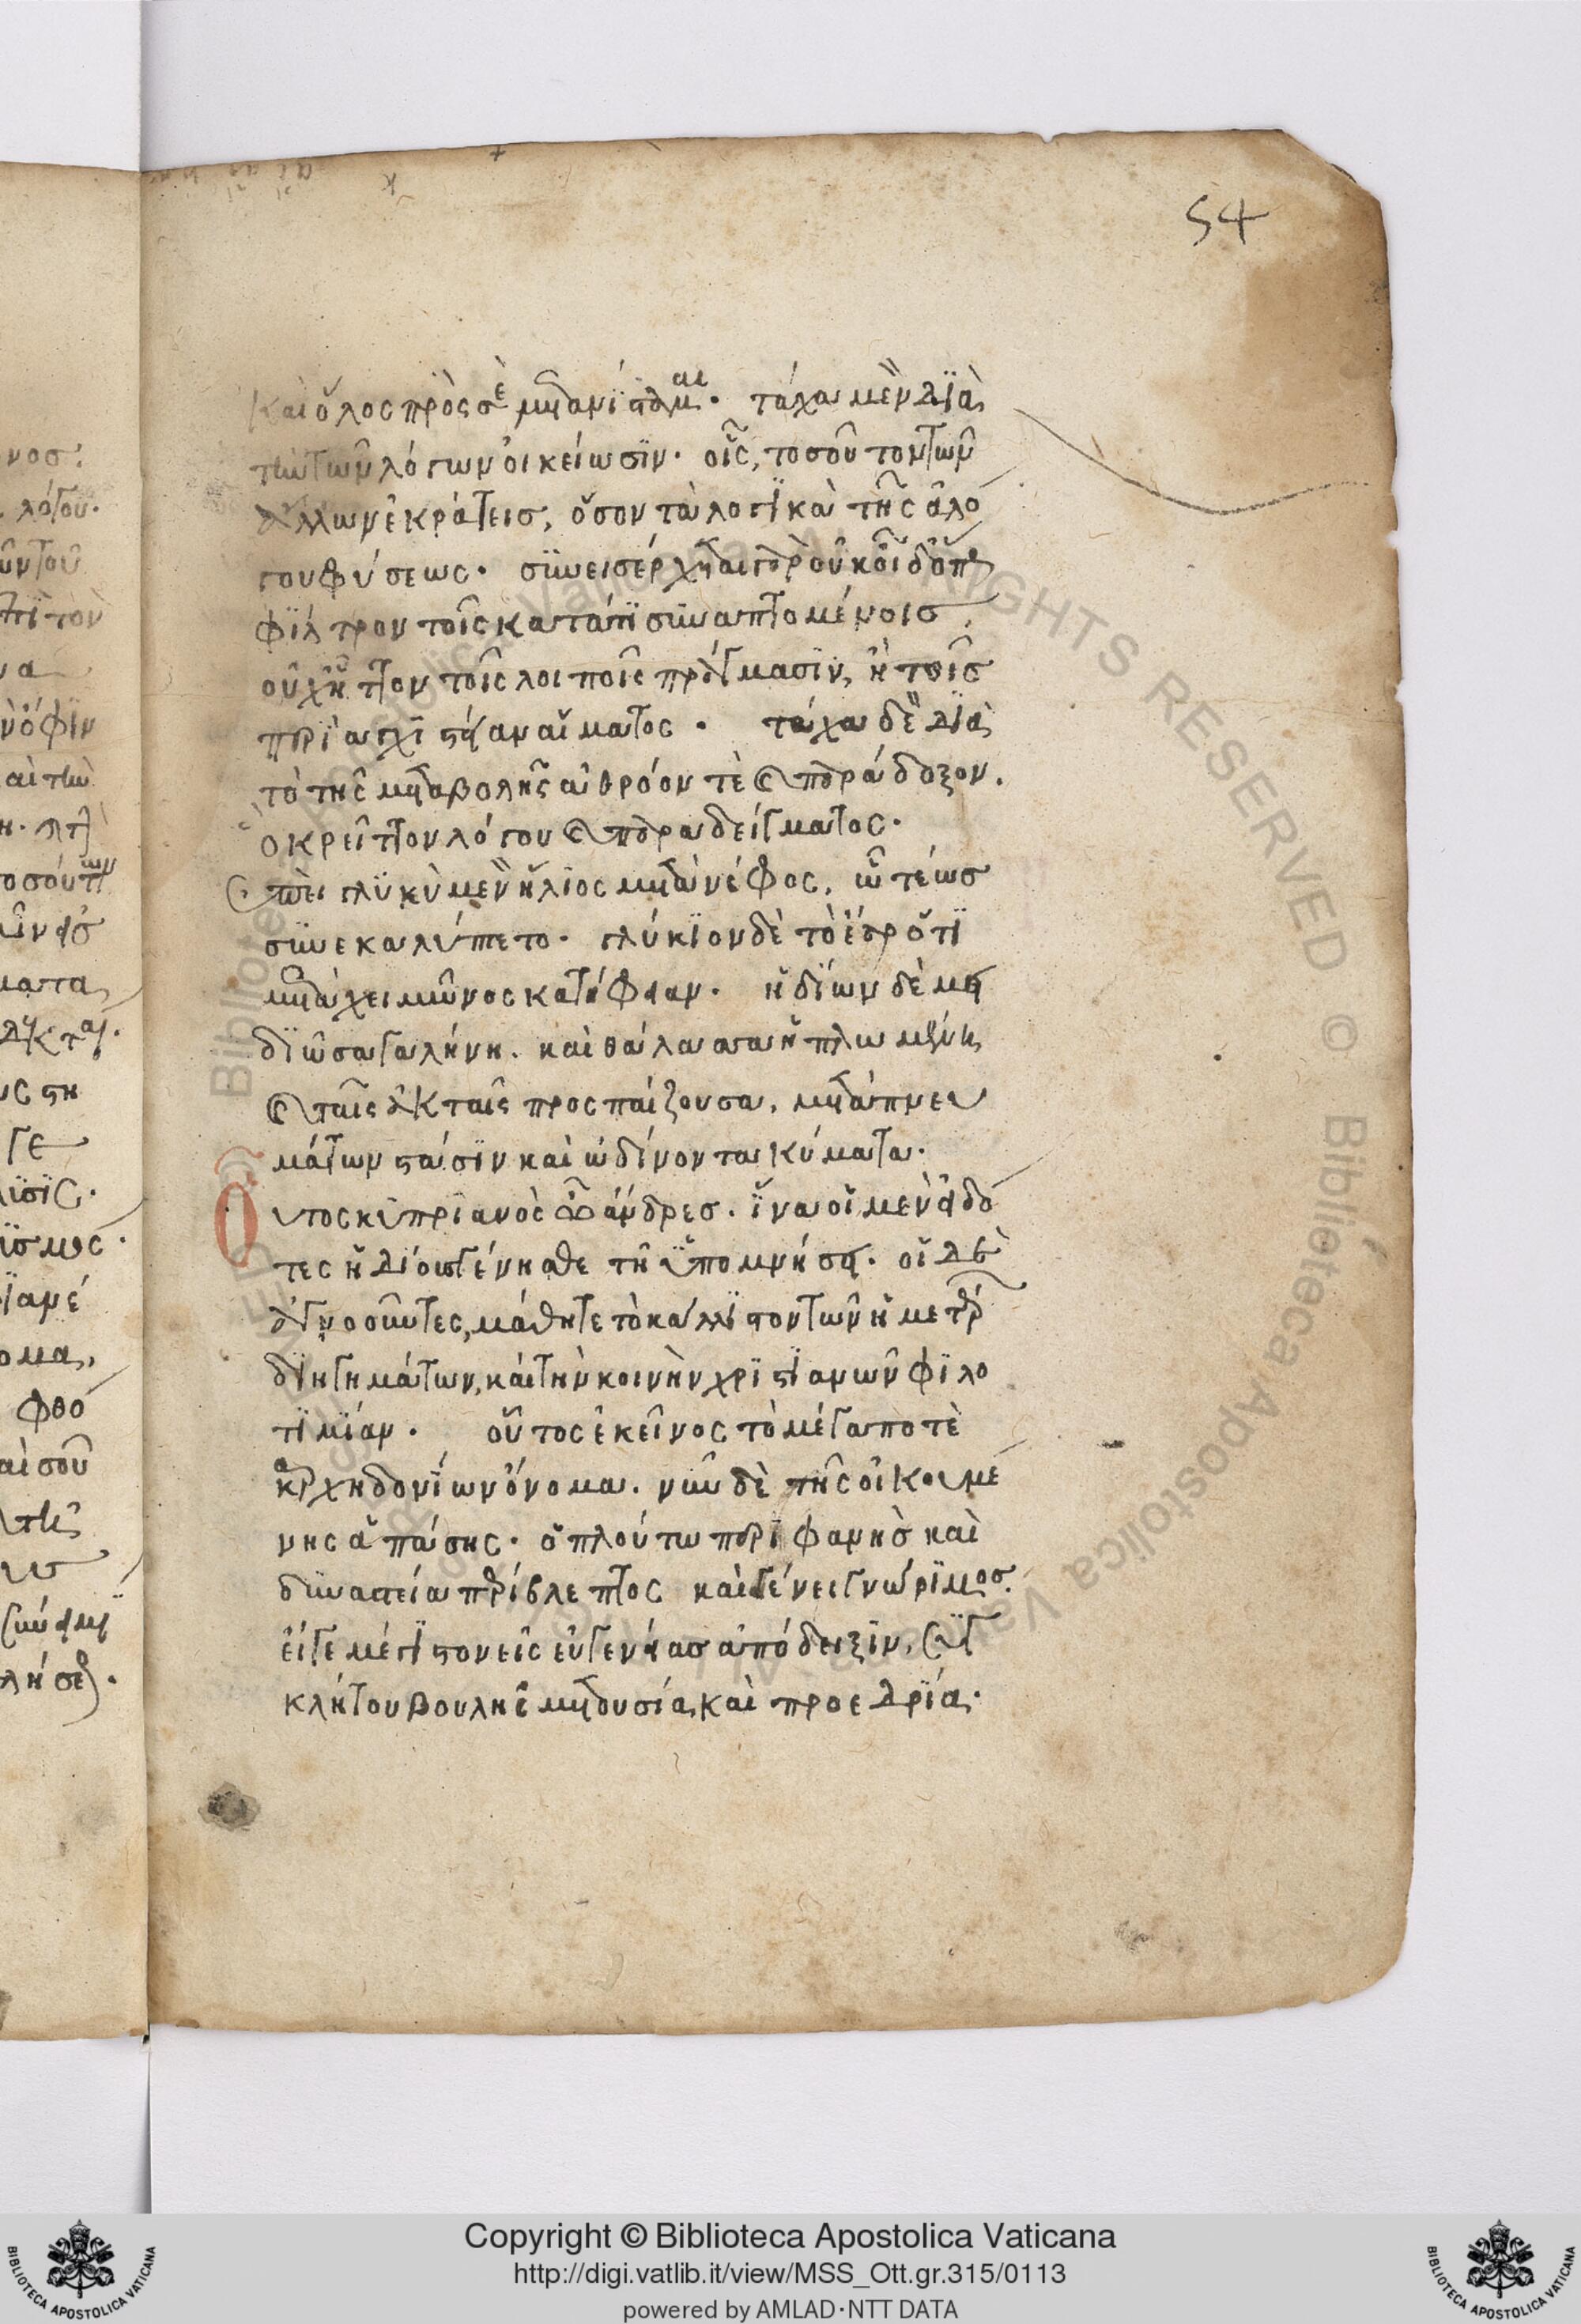 54
καὶ ὅλος πρὸς σὲ μετανίσταμαι. τάχα μὲν διὰ
τὴν τῶν λόγων οἰκείωσιν. οἷς, τοσοῦτον τῶν
ἄλλων ἐκράτεις, ὅσον τὰ λογικὰ τῆς ἀλό
γου φύσεως. συνεισέρχεται γὰρ οὐκ οἶδ' ὅπως
φίλτρον τοῖς κατά τι συναπτομένοις,
οὐχ ἧττον τοῖς λοιποῖς πράγμασιν, ἢ τοῖς
περὶ ἀγχιστείαν αἵματος. τάχα δὲ διὰ
τὸ τῆς μεταβολῆς ἀθρόον τὲ καὶ παράδοξον.
ὃ κρεῖττον λόγου καὶ παραδείγματος.
καὶ γλυκὺ μὲν ἥλιος μετὰ νέφος, ᾧ τέως
συνεκαλύπτετο. γλύκιον δὲ τὸ ἔαρ ὅτι
μετὰ χειμῶνος κατήφειαν. ἡδίων δὲ μει
διῶσα γαλήνη. καὶ θάλασσα ἡπλωμένη,
καὶ ταῖς ἀκταῖς προσπαίζουσα, μετὰ πνευ
μάτων στάσιν καὶ ὠδίνοντα κύματα.
Οὗτος κυπριανὸς ὦ ἄνδρες. ἵνα οἱ μὲν εἰδό
τες ἡδίους γένησθε τῇ ὑπομνήσει. οἱ δὲ
ἀγνοοῦντες, μάθητε τὸ κάλλιστον τῶν ἡμετέρων
διηγημάτων, καὶ τὴν κοινὴν χριστιανῶν φιλο
τιμίαν. οὗτος ἐκεῖνος τὸ μέγα ποτὲ
καρχηδονίων ὄνομα. νῦν δὲ τῆς οἰκουμέ
νης ἁπάσης. ὁ πλούτω περιφανὴς καὶ
δυναστεία περίβλεπτος καὶ γένει γνώριμος.
εἴγε μέγιστον εἰς εὐγενείας ἀπόδειξιν, συγ
κλήτου βουλῆς μετουσία, καὶ προεδρία.
Copyright © Biblioteca Apostolica Vaticana
http://digi.vatlib.it/view/MSS_Ott.gr.315/0113
powered by AMLAD·NTT DATA